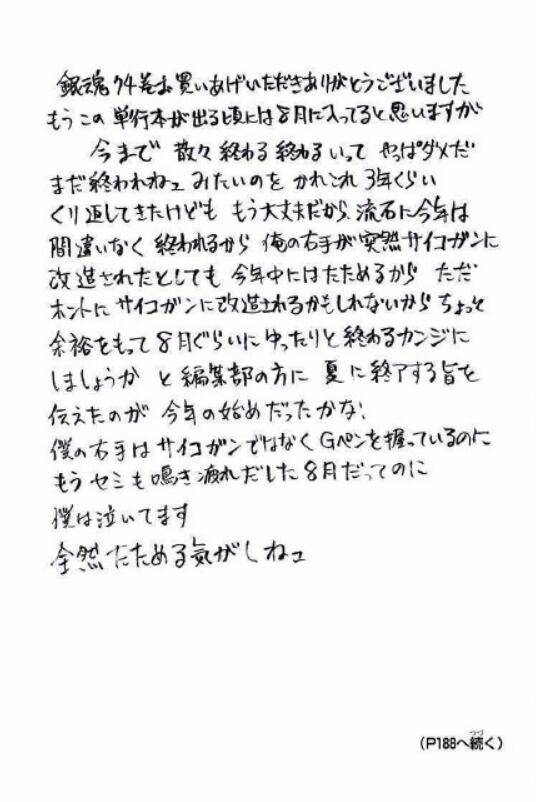 銀魂74巻お買いあげいただきありがとうございました
もうこの単行本が出る頃には8月に入ってると思いますが
今まで 散々終わる終わるいって やっぱダメだ
まだ終われねェ みたいのを かれこれ3年くらい
くり返してきたけども もう大丈夫だから、流石に今年は
間違いなく 終われるから 俺の右手が突然サイコガンに
改造されたとしても 今年中にはたためるから ただ
ホントに サイコガンに改造されるかもしれないから ちょっと
余裕をもって 8月ぐらいに ゆったりと終わるカンジに
しましょうか と編集部の方に 夏に終了する旨を
伝えたのが 今年の始めだったかな、
僕の右手はサイコガンではなく Gペンを握っているのに
もう セミも鳴き疲れだした 8月だってのに
僕は泣いてます
全然たためる気がしねェ
(P188へ続く)
つづ